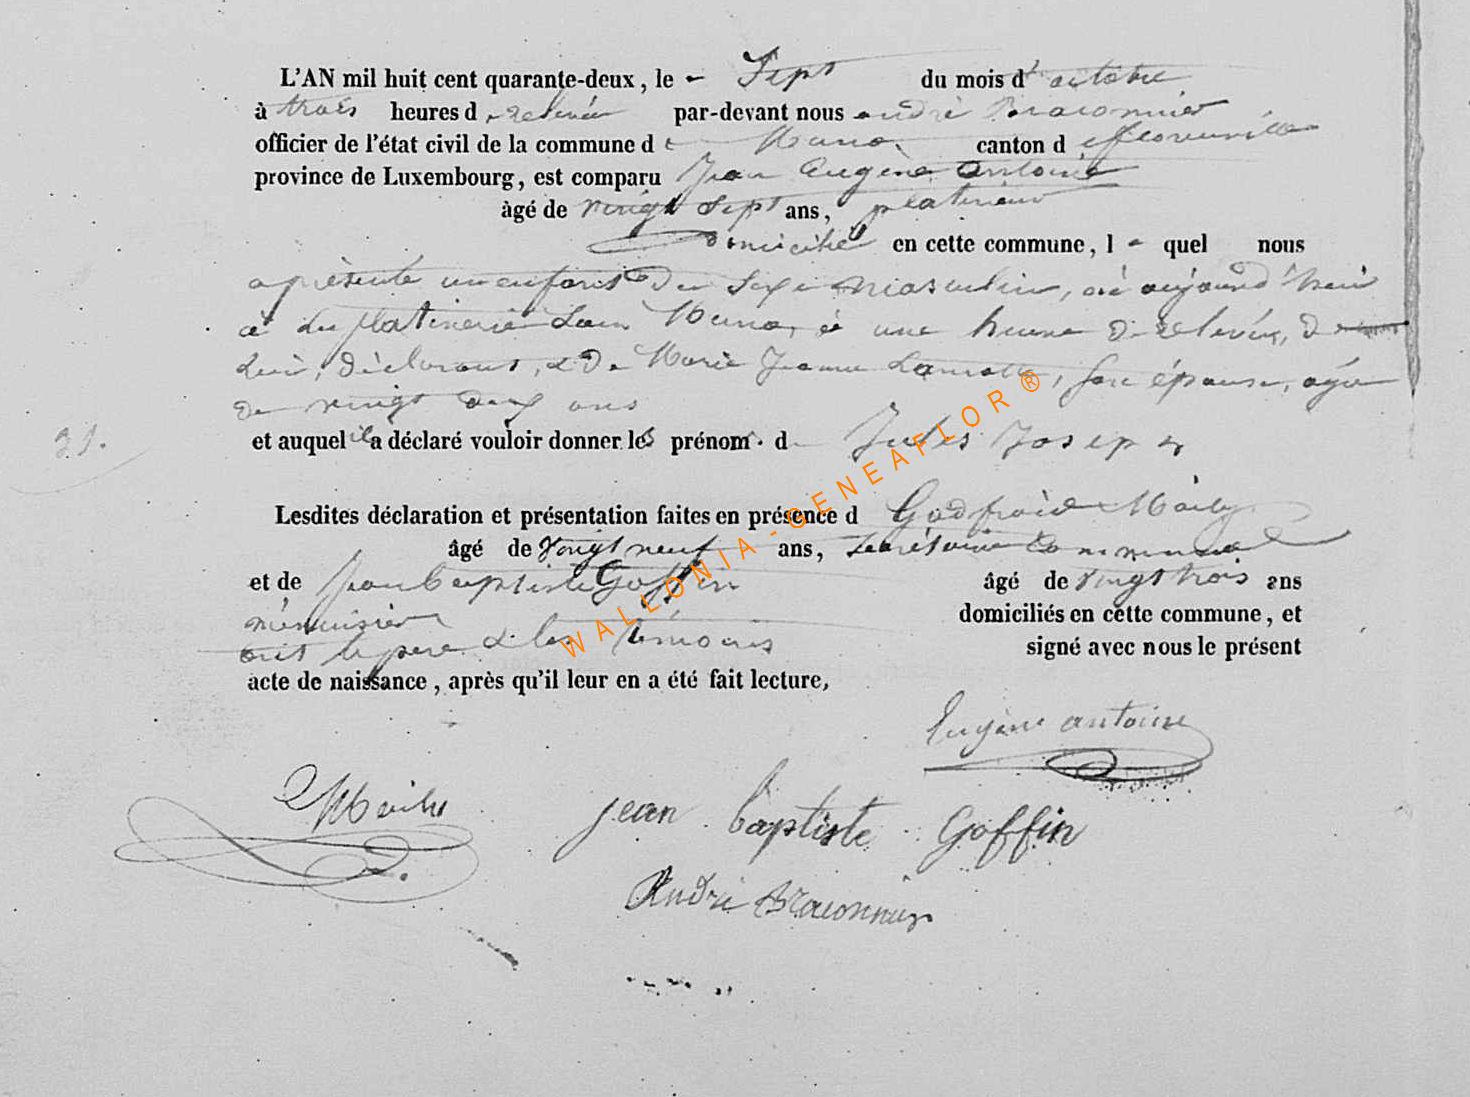 L'AN mil huit cent quarante-deux, le Sept du mois d'octobre
à trois heures de relevée par-devant nous andré Braconnier
officier de l'état civil de la commune de Muno, canton de florenville
province de Luxembourg, est comparu Jean Eugène Antoine
âgé de vingt sept ans, platineur
domicilié en cette commune, lequel nous
a présenté un enfant du sexe masculin, né aujourd'hui
à la platinerie Muno, à une heure de relevée, de
lui, déclarant, & de Marie Jeanne Lamotte, son épouse, agée
de vingt deux ans
31.
et auquel il a déclaré vouloir donner les prénoms de Jules Joseph
Lesdites déclaration et présentation faites en présence de Godfroid Maily
âgé de Vingt neuf ans, secrétaire Communal
et de jean baptiste Goffin âgé de vingt trois ans
menuisier domiciliés en cette commune, et
ont le père & les témoins signé avec nous le présent
acte de naissance, après qu'il leur en a été fait lecture,
Eugène antoine
jean baptiste Goffin
André Braconnier
WALLONIA-GENEAFLOR®